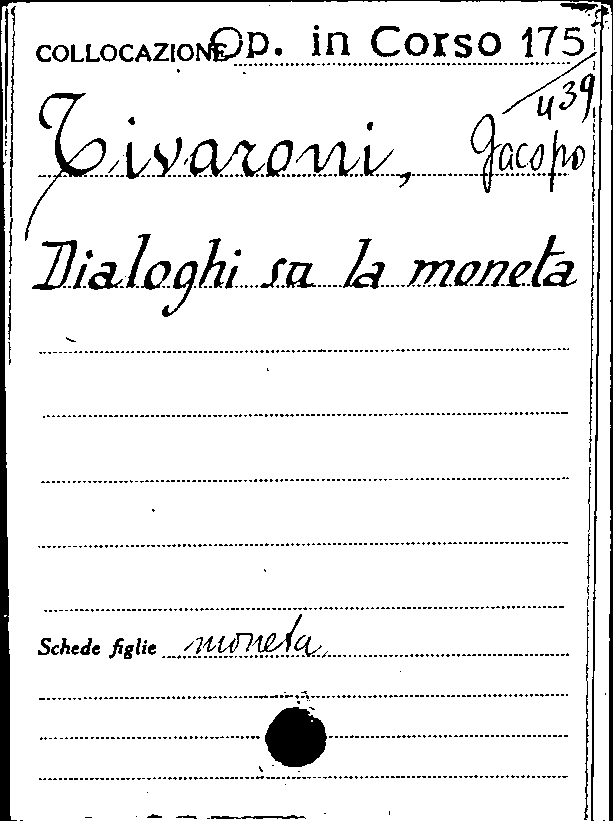 COLLOCAZIONE Op. in Corso 175
439
Tivaroni, Jacopo
Dialoghi su la moneta
Schede figlie moneta